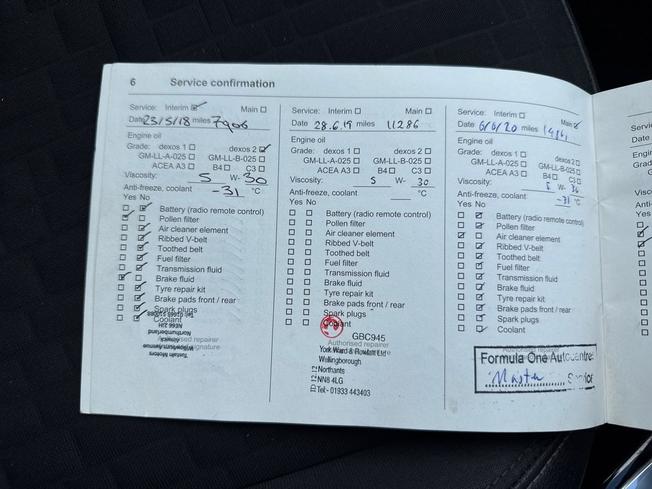 6 Service confirmation
Service: Interim Main
Date 23/5/18 miles 7906
Engine oil
Grade: dexos 1 dexos 2
GM-LL-A-025 GM-LL-B-025
ACEA A3 B4 C3
Viscosity: 5 W- 30
Anti-freeze, coolant -31 °C
Yes No
Battery (radio remote control)
Pollen filter
Air cleaner element
Ribbed V-belt
Toothed belt
Fuel filter
Transmission fluid
Brake fluid
Tyre repair kit
Brake pads front / rear
Spark plugs
Coolant
Northumberland
Service: Interim Main
Date 28.6.19 miles 11286
Engine oil
Grade: dexos 1 dexos 2
GM-LL-A-025 GM-LL-B-025
ACEA A3 B4 C3
Viscosity: 5 W- 30
Anti-freeze, coolant °C
Yes No
Battery (radio remote control)
Pollen filter
Air cleaner element
Ribbed V-belt
Toothed belt
Fuel filter
Transmission fluid
Brake fluid
Tyre repair kit
Brake pads front / rear
Spark plugs
Coolant
GBC945
Authorised repairer
York Ward & Rowlatt Ltd
Wellingborough
Northants
NN8 4LG
Tel:- 01933 443403
Service: Interim Main
Date 6/6/20 miles
Engine oil
Grade: dexos 1 dexos 2
GM-LL-A-025 GM-LL-B-025
ACEA A3 B4 C3
Viscosity: 5 W- 30
Anti-freeze, coolant -31 °C
Yes No
Battery (radio remote control)
Pollen filter
Air cleaner element
Ribbed V-belt
Toothed belt
Fuel filter
Transmission fluid
Brake fluid
Tyre repair kit
Brake pads front / rear
Spark plugs
Coolant
Authorised repairer
Formula One Autocentres
Master